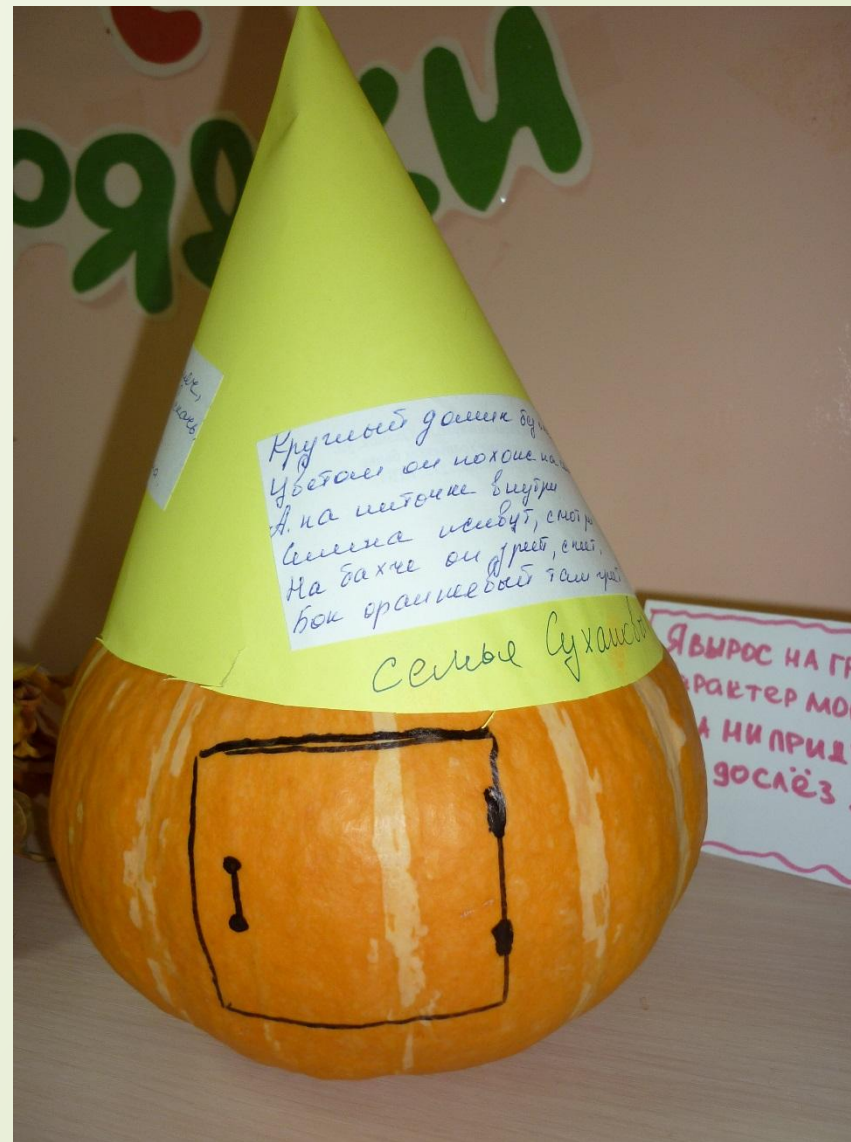 рядки
Круглый домик
Цветом он похож на
А на ниточке внутри
Семена живут, смотри
На бахче он зреет, спит,
Бок оранжевый там греет
семья Сухановы
Я ВЫРОС НА ГР
арактер мо
А НИ ПРИД
ДОСЛЁЗ